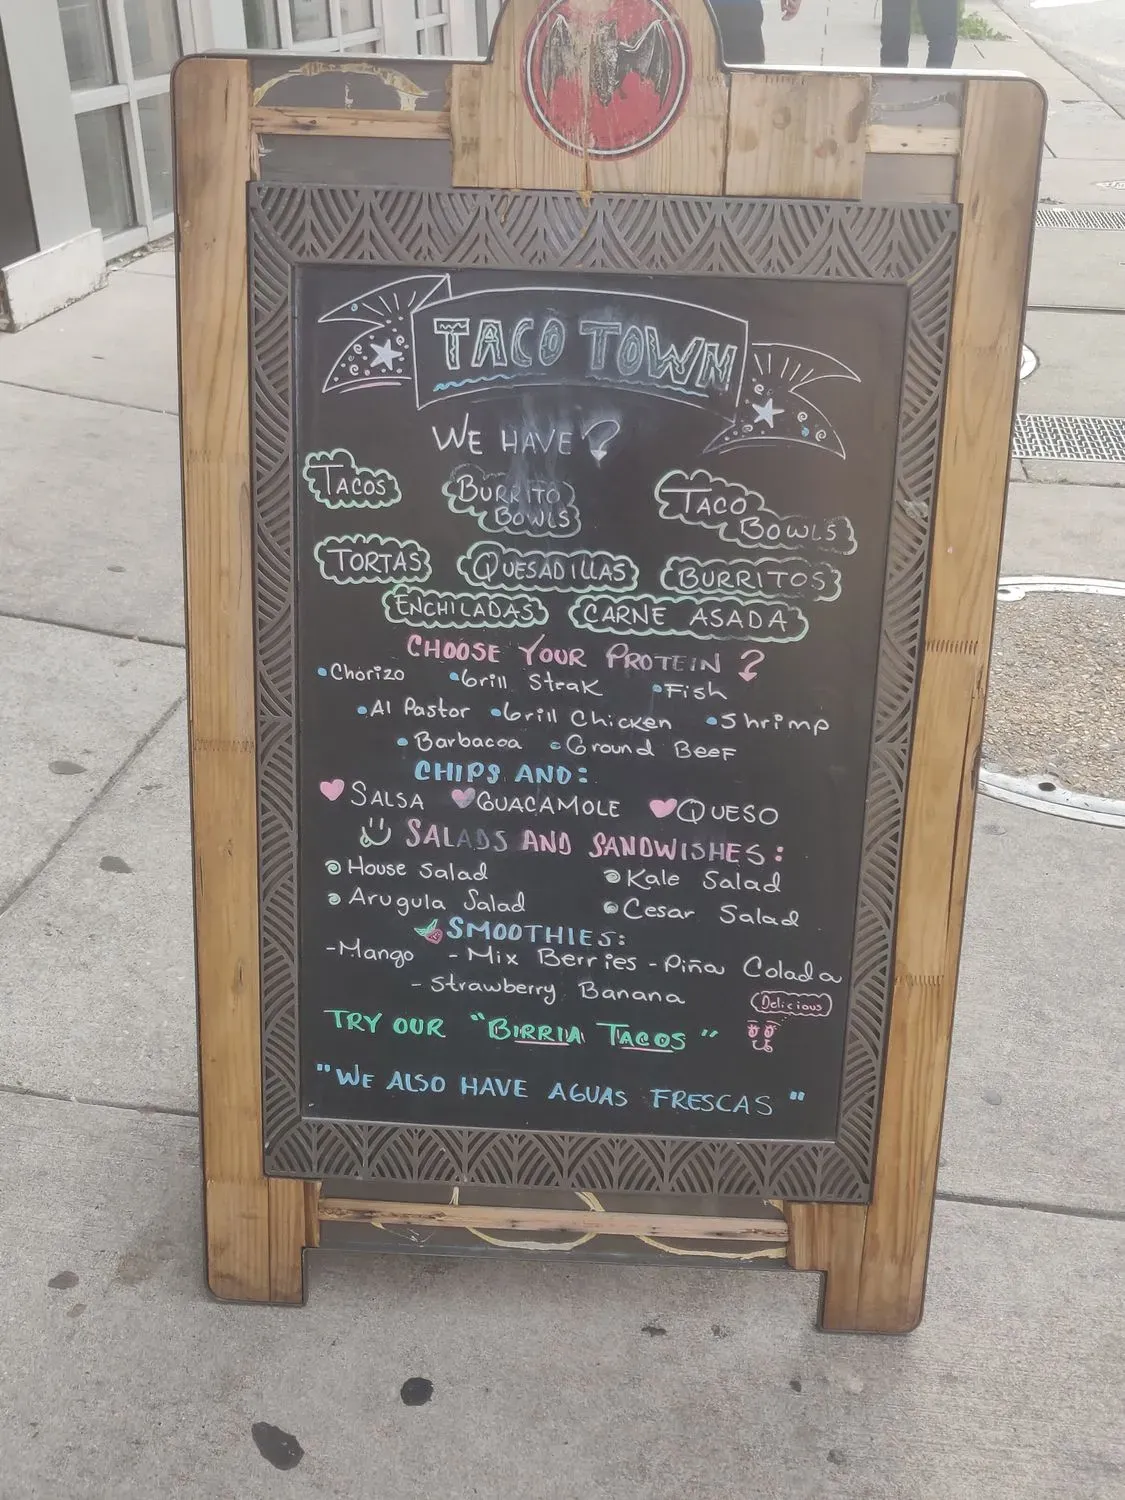 TACO TOWN
WE HAVE?
TACOS BURRITO BOWLS TACO BOWLS
TORTAS QUESADILLAS BURRITOS
ENCHILADAS CARNE ASADA
CHOOSE YOUR PROTEIN?
•Chorizo •Grill Steak •Fish
•Al Pastor •Grill Chicken •Shrimp
•Barbacoa •Ground Beef
CHIPS AND:
SALSA GUACAMOLE QUESO
SALADS AND SANDWISHES:
House Salad Kale Salad
Arugula Salad Cesar Salad
SMOOTHIES:
-Mango - Mix Berries - Piña Colada
- Strawberry Banana
Delicious
TRY OUR "BIRRIA TACOS"
"WE ALSO HAVE AGUAS FRESCAS"